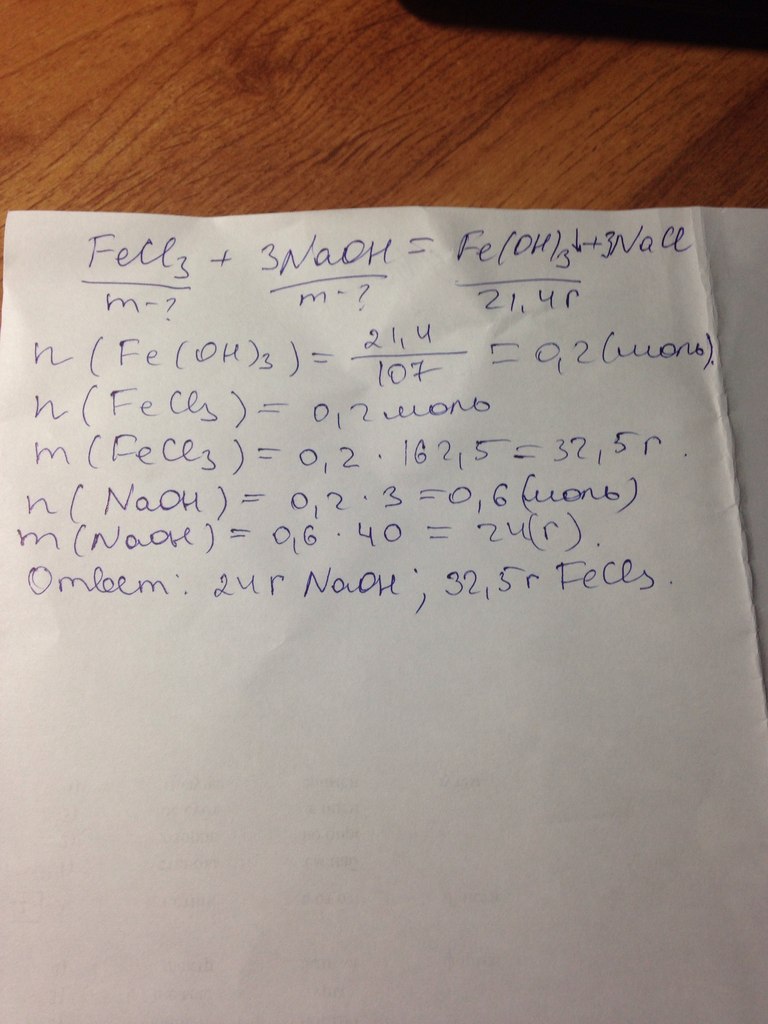 FeCl₃ + 3NaOH = Fe(OH)₃↓+3NaCl
m-? m-? 21,4г
n (Fe(OH)₃) = 21,4/107 = 0,2(моль).
n (FeCl₃) = 0,2моль
m (FeCl₃) = 0,2 · 162,5 = 32,5г.
n( NaOH) = 0,2 · 3 = 0,6(моль)
m(NaOH) = 0,6 · 40 = 24(г).
Ответ: 24г NaOH; 32,5г FeCl₃.